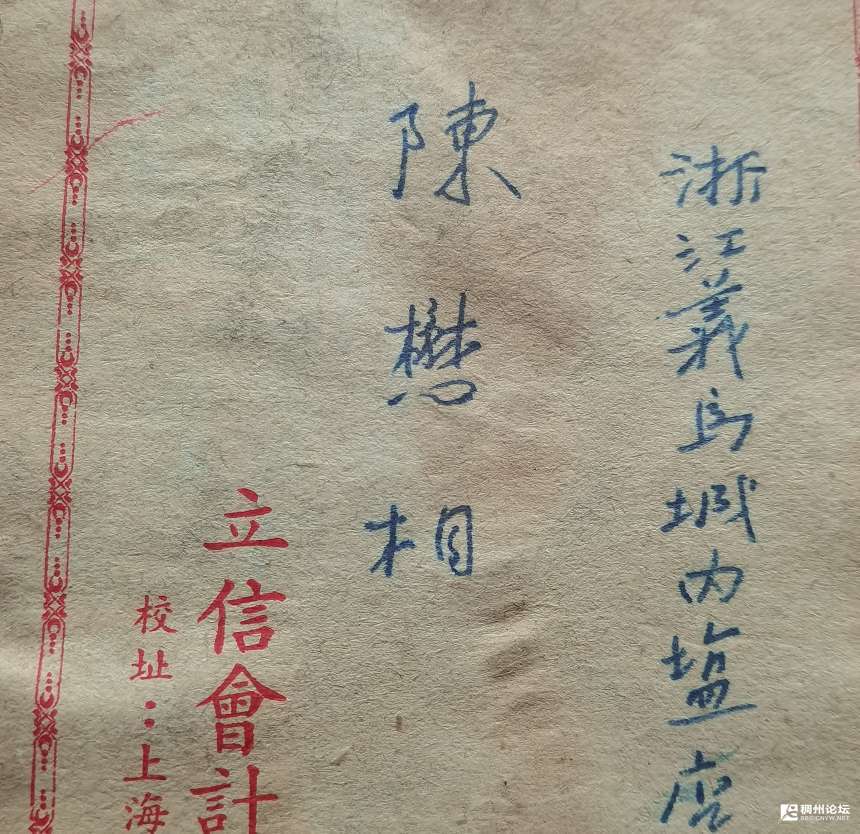 浙江義烏城内塩
陳懋相
立信會計
校址：上海
稠州论坛
BBS.CNYW.NET